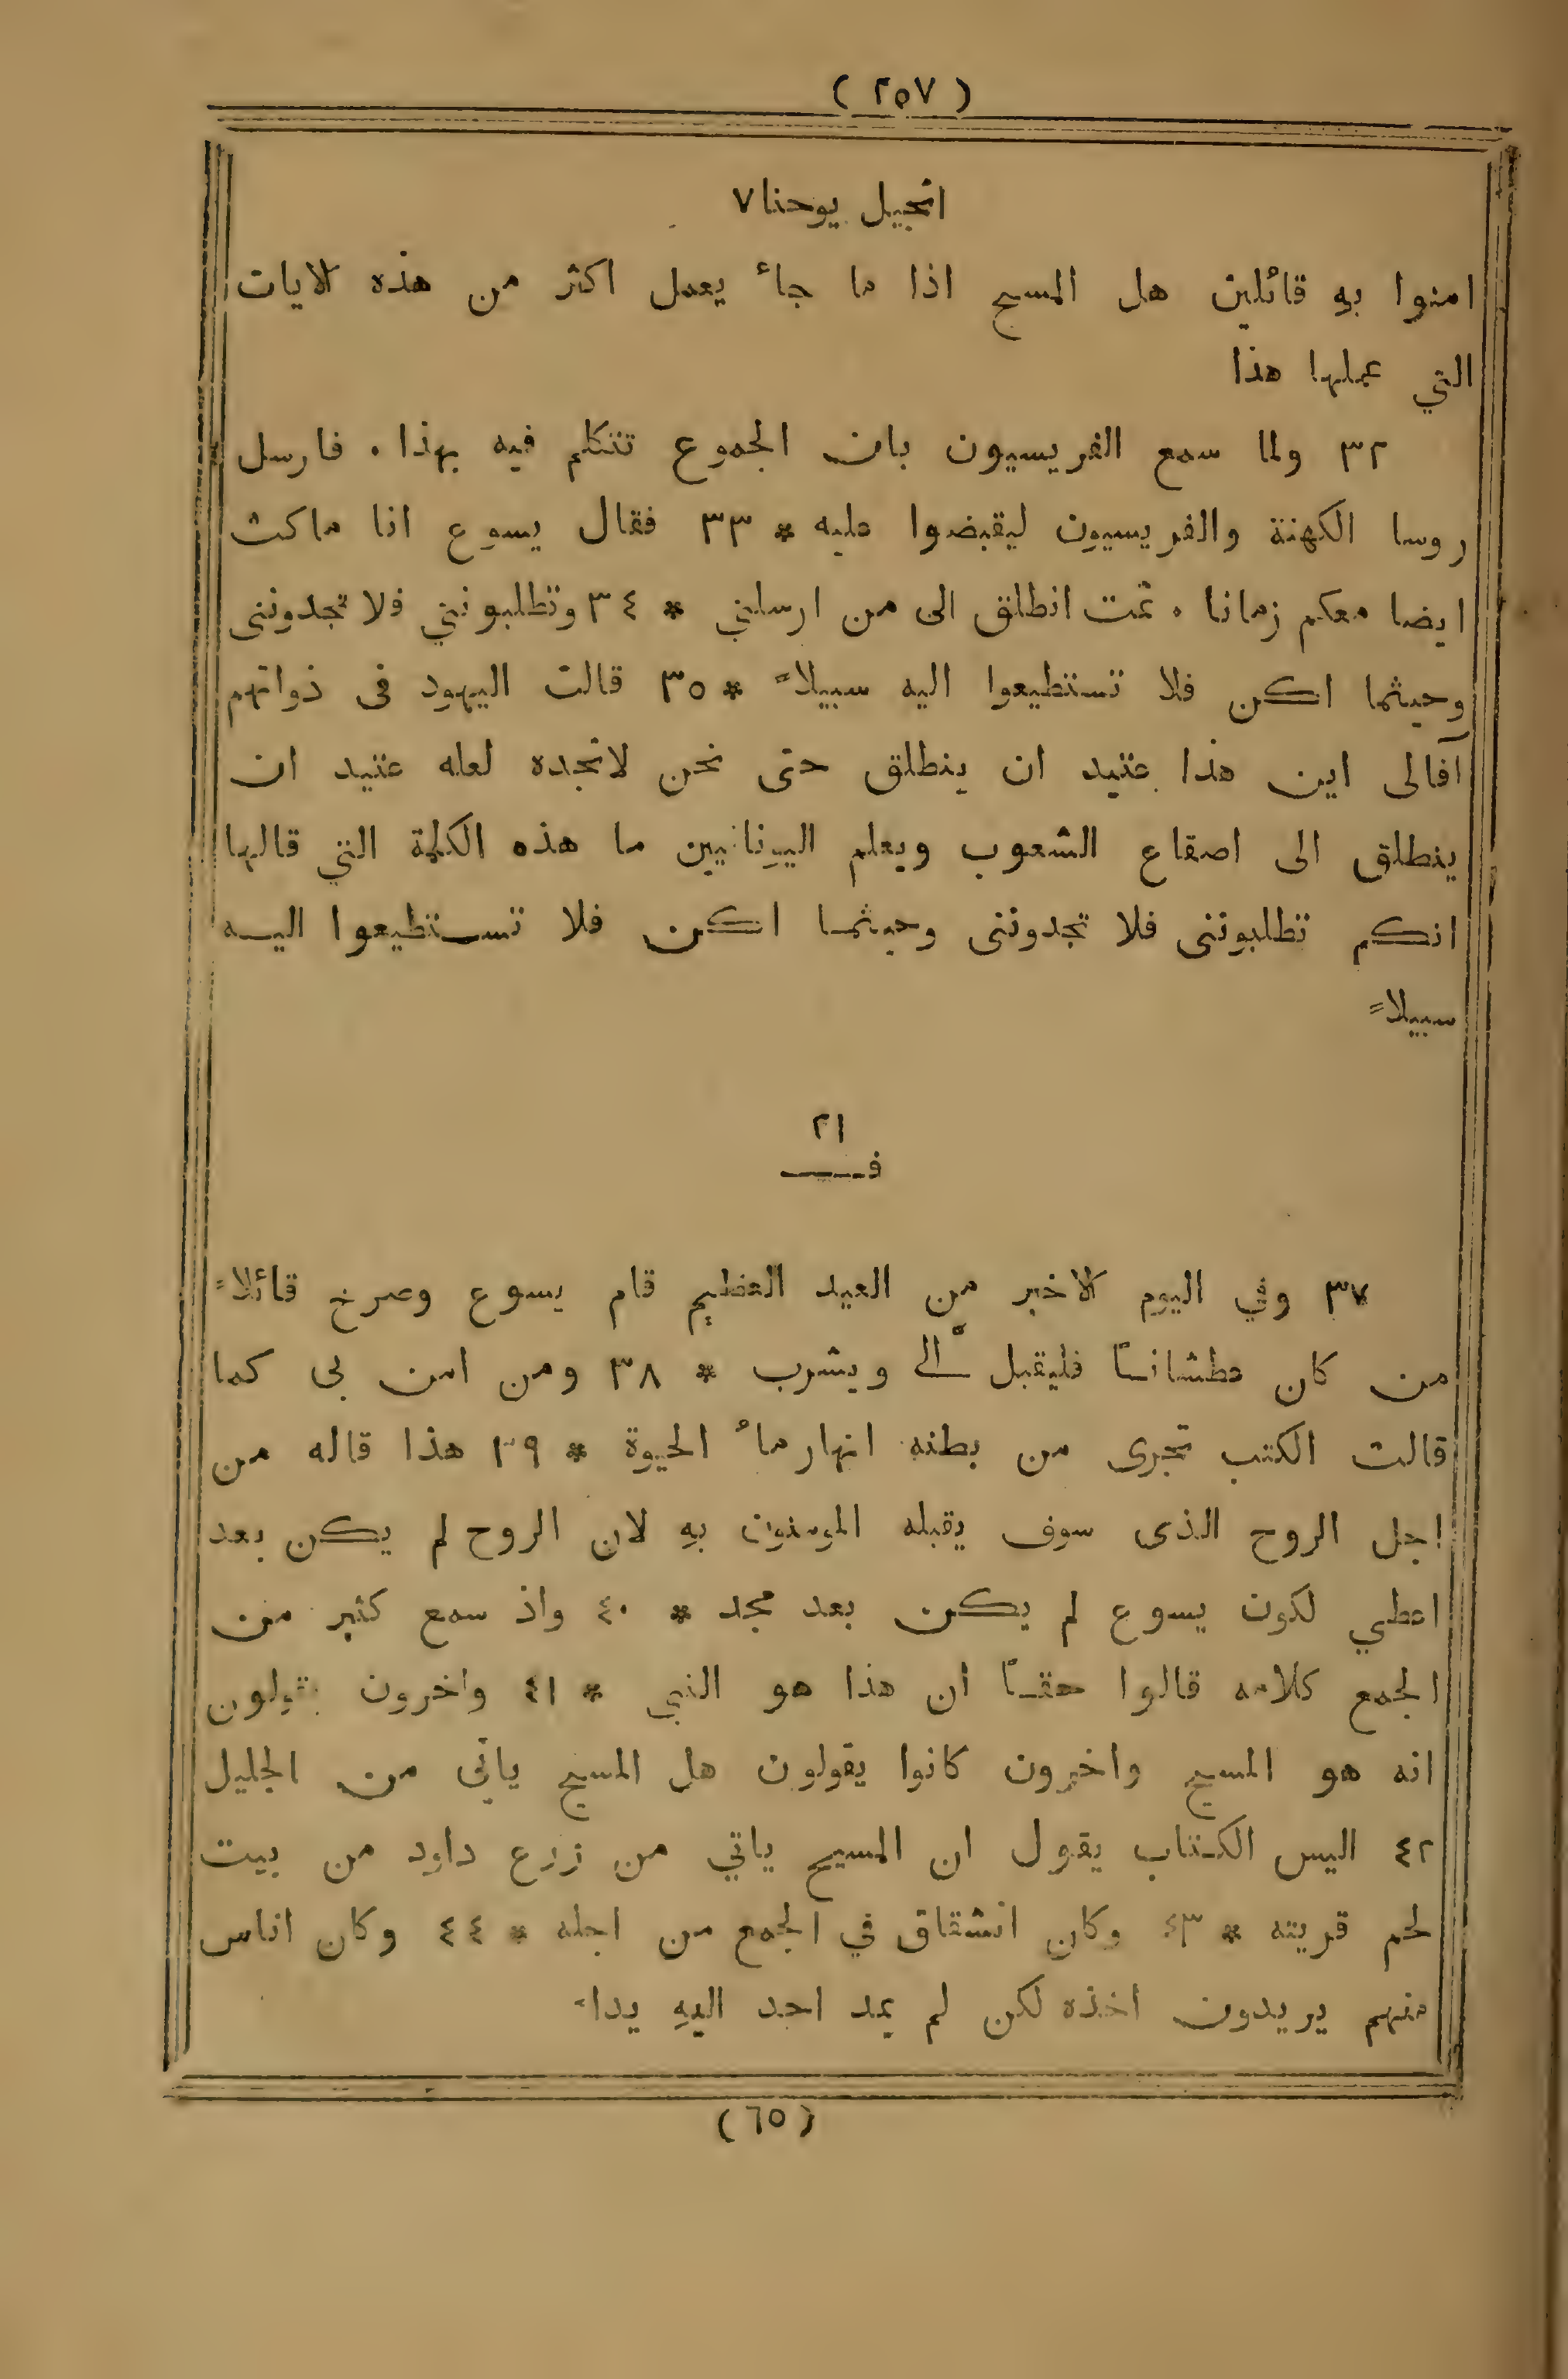 ( ٢٥٧ )
انجيل يوحنا ٧
امنوا به قائلين هل المسيح اذا ما جاء يعمل اكثر من هذه الايات
التي عملها هذا
٣٢ ولما سمع الفريسيون بان الجموع تتكلم فيه بهذا . فارسل
روسا الكهنة والفريسيون ليقبضوا عليه * ٣٣ فقال يسوع انا ماكث
ايضا معكم زمانا . ثمت انطلق الى من ارسلني * ٣٤ وتطلبونني فلا تجدوننى
وحيثما اكن فلا تستطيعوا اليه سبيلاً * ٣٥ قالت اليهود فى ذواتهم
آفالى اين هذا عتيد ان ينطلق حتى نحن لانجده لعله عتيد ان
ينطلق الى اصقاع الشعوب ويعلم اليونانيين ما هذه الكلمة التي قالها
انكم تطلبوننى فلا تجدوننى وحيثما اكن فلا تستطيعوا اليه
سبيلاً
٢١
ف
٣٧ وفي اليوم الاخير من العيد العظيم قام يسوع وصرخ قائلاً
من كان عطشاناً فليقبل الىّ ويشرب * ٣٨ ومن امن بى كما
قالت الكتب تجرى من بطنه انهار ماء الحيوة * ٣٩ هذا قاله من
اجل الروح الذى سوف يقبله المومنون به لان الروح لم يكن بعد
اعطي لكون يسوع لم يكن بعد مجد * ٤٠ واذ سمع كثير من
الجمع كلامه قالوا حقاً ان هذا هو النبي * ٤١ واخرون يقولون
انه هو المسيح واخرون كانوا يقولون هل المسيح ياتى من الجليل
٤٢ اليس الكتاب يقول ان المسيح ياتي من زرع داود من بيت
لحم قريته * ٤٣ وكان انشقاق في الجمع من اجله * ٤٤ وكان اناس
منهم يريدون اخذه لكن لم يمد احد اليه يداً
( ٦٥ )